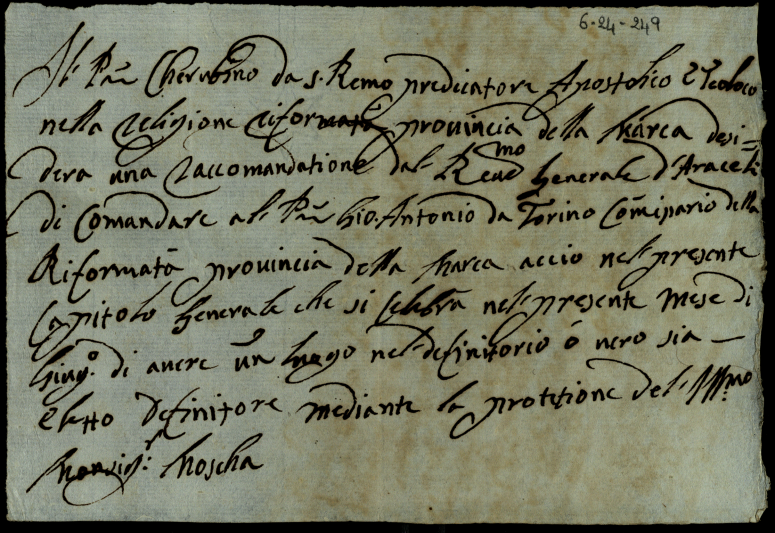 6-24-249
Il P̃re Cherubino da S. Remo predicatore Apostolico e Teologo
nella religione riformata provincia della Marca desi=
dera una raccomandatione dal Reũdmo Generale d'Araceli
di Comandare al P̃re Gio. Antonio da Torino Com̃ipario della
Riformata provincia della Marca accio nel presente
Capitolo Generale che si Celebra nel presente mese di
Giug.o di avere un luogo nel definitorio ò vero sia —
eletto definitore mediante la protetione del Ill.mo
Monsig.re Moscha